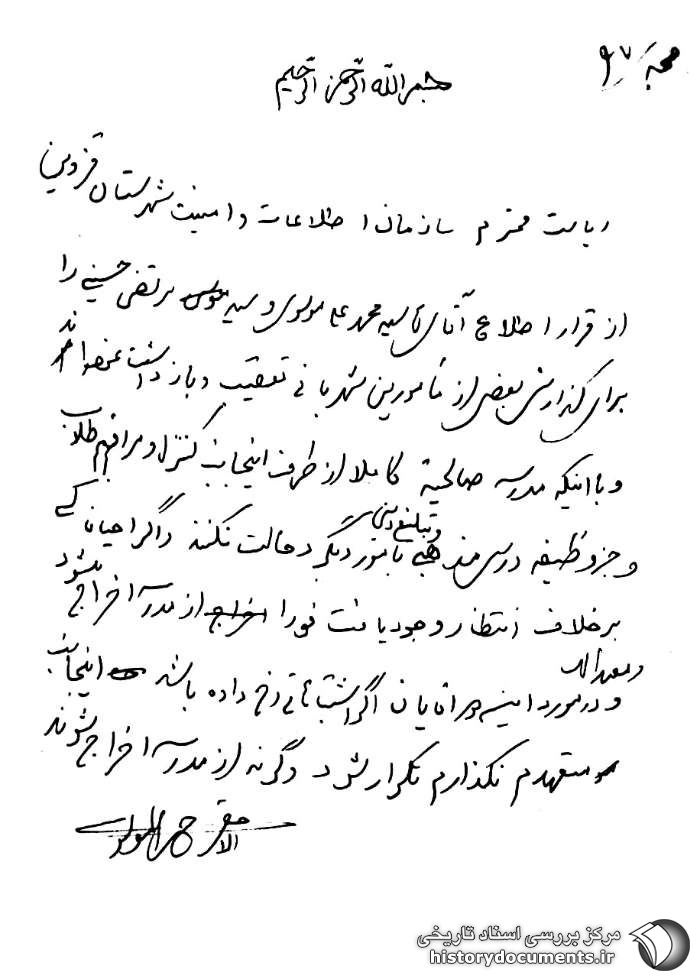 بسم الله الرحمن الرحیم
ریاست محترم سازمان اطلاعات و امنیت شهرستان قزوین
از قرار اطلاع آقای سید محمد علی مولوی و سید مرتضی حسینی را
برای گذارش بعضی از مأمورین شهربانی تعقیب و بازداشت نموده‌اند
و با اینکه مدرسه صالحیة کاملا از طرف اینجانب کنترل و مراقبم طلاب
و جز وظیفه درسی مذهبی و تبلیغ دینی بامور دیگر دخالت نکنند و اگر احیانا کسی
برخلاف انتظار وجود یافت فورا از مدرسه اخراج میشود
و در مورد این آقایان اگر اشتباهاتی رخ داده باشد اینجانب
متعهدم نگذارم تکرار شود وگرنه از مدرسه اخراج شوند
الاحقر
مرکز بررسی اسناد تاریخی
historydocuments.ir